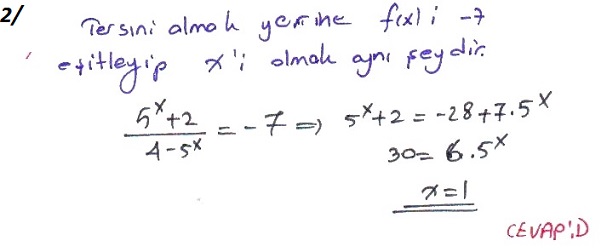 2/ Tersini almak yerine f(x)'i -7
eşitleyip x'i almak aynı şeydir.
(5^x+2)/(4-5^x) = -7 ⇒ 5^x+2 = -28+7.5^x
30 = 6.5^x
x=1
CEVAP:D